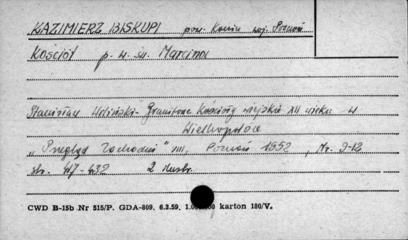 KAZIMIERZ BISKUPI pow. Konin woj. Poznań
Kościół p. w. św. Marcina
Stanisław Wiliński - Granitowe Kościoły wiejskie XII wieku w
Wielkopolsce
„Przegląd Zachodni" VIII, Poznań 1952, Nr. 9-12
str. 432 2 ilustr.
CWD B-15b Nr 515/P. GDA-809. 6.3.59. karton 180/V.